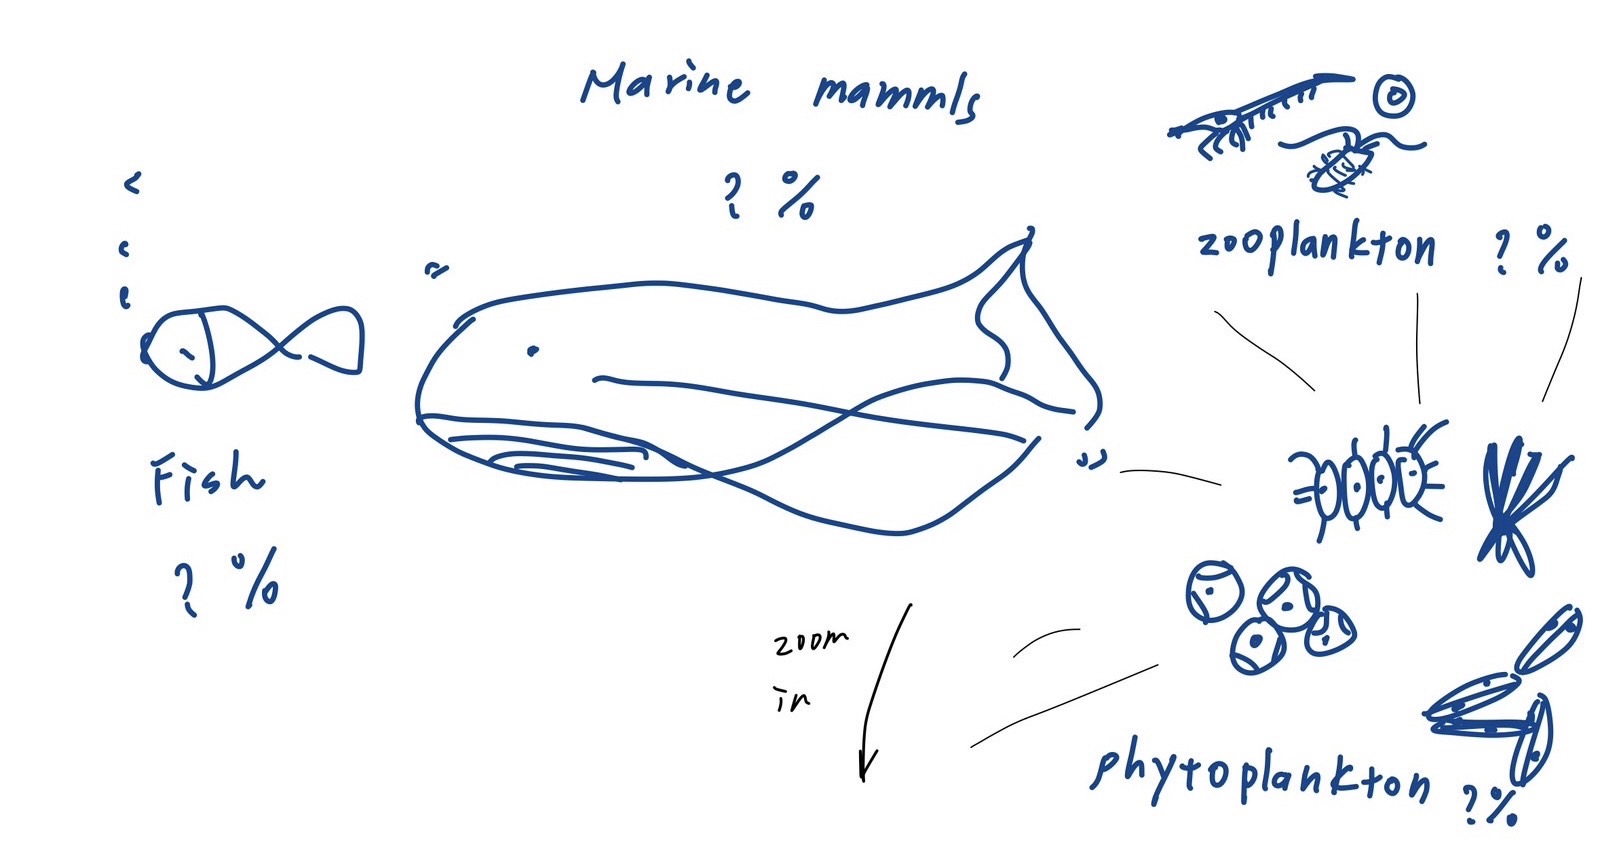 Marine mammls
? %
zooplankton ? %
Fish
? %
zoom
in
phytoplankton ? %